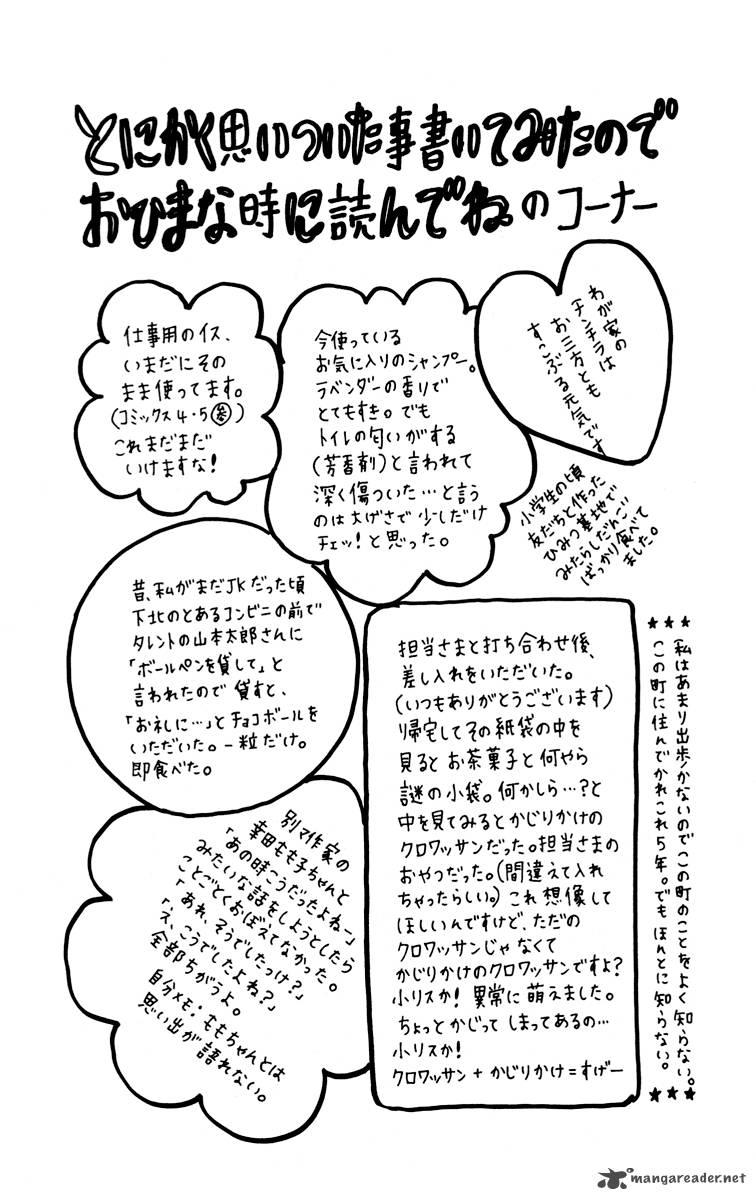 とにかく思いついた事書いてみたので
おひまな時に読んでね のコーナー
わが家の
チンチラは
お三方とも
すこぶる元気です
今使っている
お気に入りのシャンプー。
ラベンダーの香りで
とてもすき。でも
トイレの匂いがする
(芳香剤)と言われて
深く傷ついた…と言う
のは大げさで少しだけ
チェッ!と思った。
仕事用のイス、
いまだにその
まま使ってます。
(コミックス4・5巻)
これまだまだ
いけますな!
小学生の頃
友だちと作った
ひみつ基地で
みたらしだんご
ばっかり食べて
ました。
昔、私がまだJKだった頃
下北のとあるコンビニの前で
タレントの山本太郎さんに
「ボールペンを貸して」と
言われたので貸すと、
「お礼に…」とチョコボールを
いただいた。一粒だけ。
即食べた。
★★★私はあまり出歩かないのでこの町のことをよく知らない。★★★
この町に住んでかれこれ5年。でもほんとに知らない。
担当さまと打ち合わせ後、
差し入れをいただいた。
(いつもありがとうございます)
帰宅してその紙袋の中を
見るとお茶菓子と何やら
謎の小袋。何かしら…?と
中を見てみるとかじりかけの
クロワッサンだった。担当さまの
おやつだった。(間違えて入れ
ちゃったらしい。)これ想像して
ほしいんですけど、ただの
クロワッサンじゃなくて
かじりかけのクロワッサンですよ?
小リスか!異常に萌えました。
ちょっとかじってしまってあるの…
小リスか!
クロワッサン+かじりかけ=すげー
別マ作家の
幸田もも子ちゃんと
「あの時こうだったよねー」
みたいな話をしようとしたら
ことごとくおぼえてなかった。
「あれ、そうでしたっけ?」
「え、こうでしたよね?」
全部ちがうよ。
自分メモ。ももちゃんとは
思い出が語れない。
mangareader.net